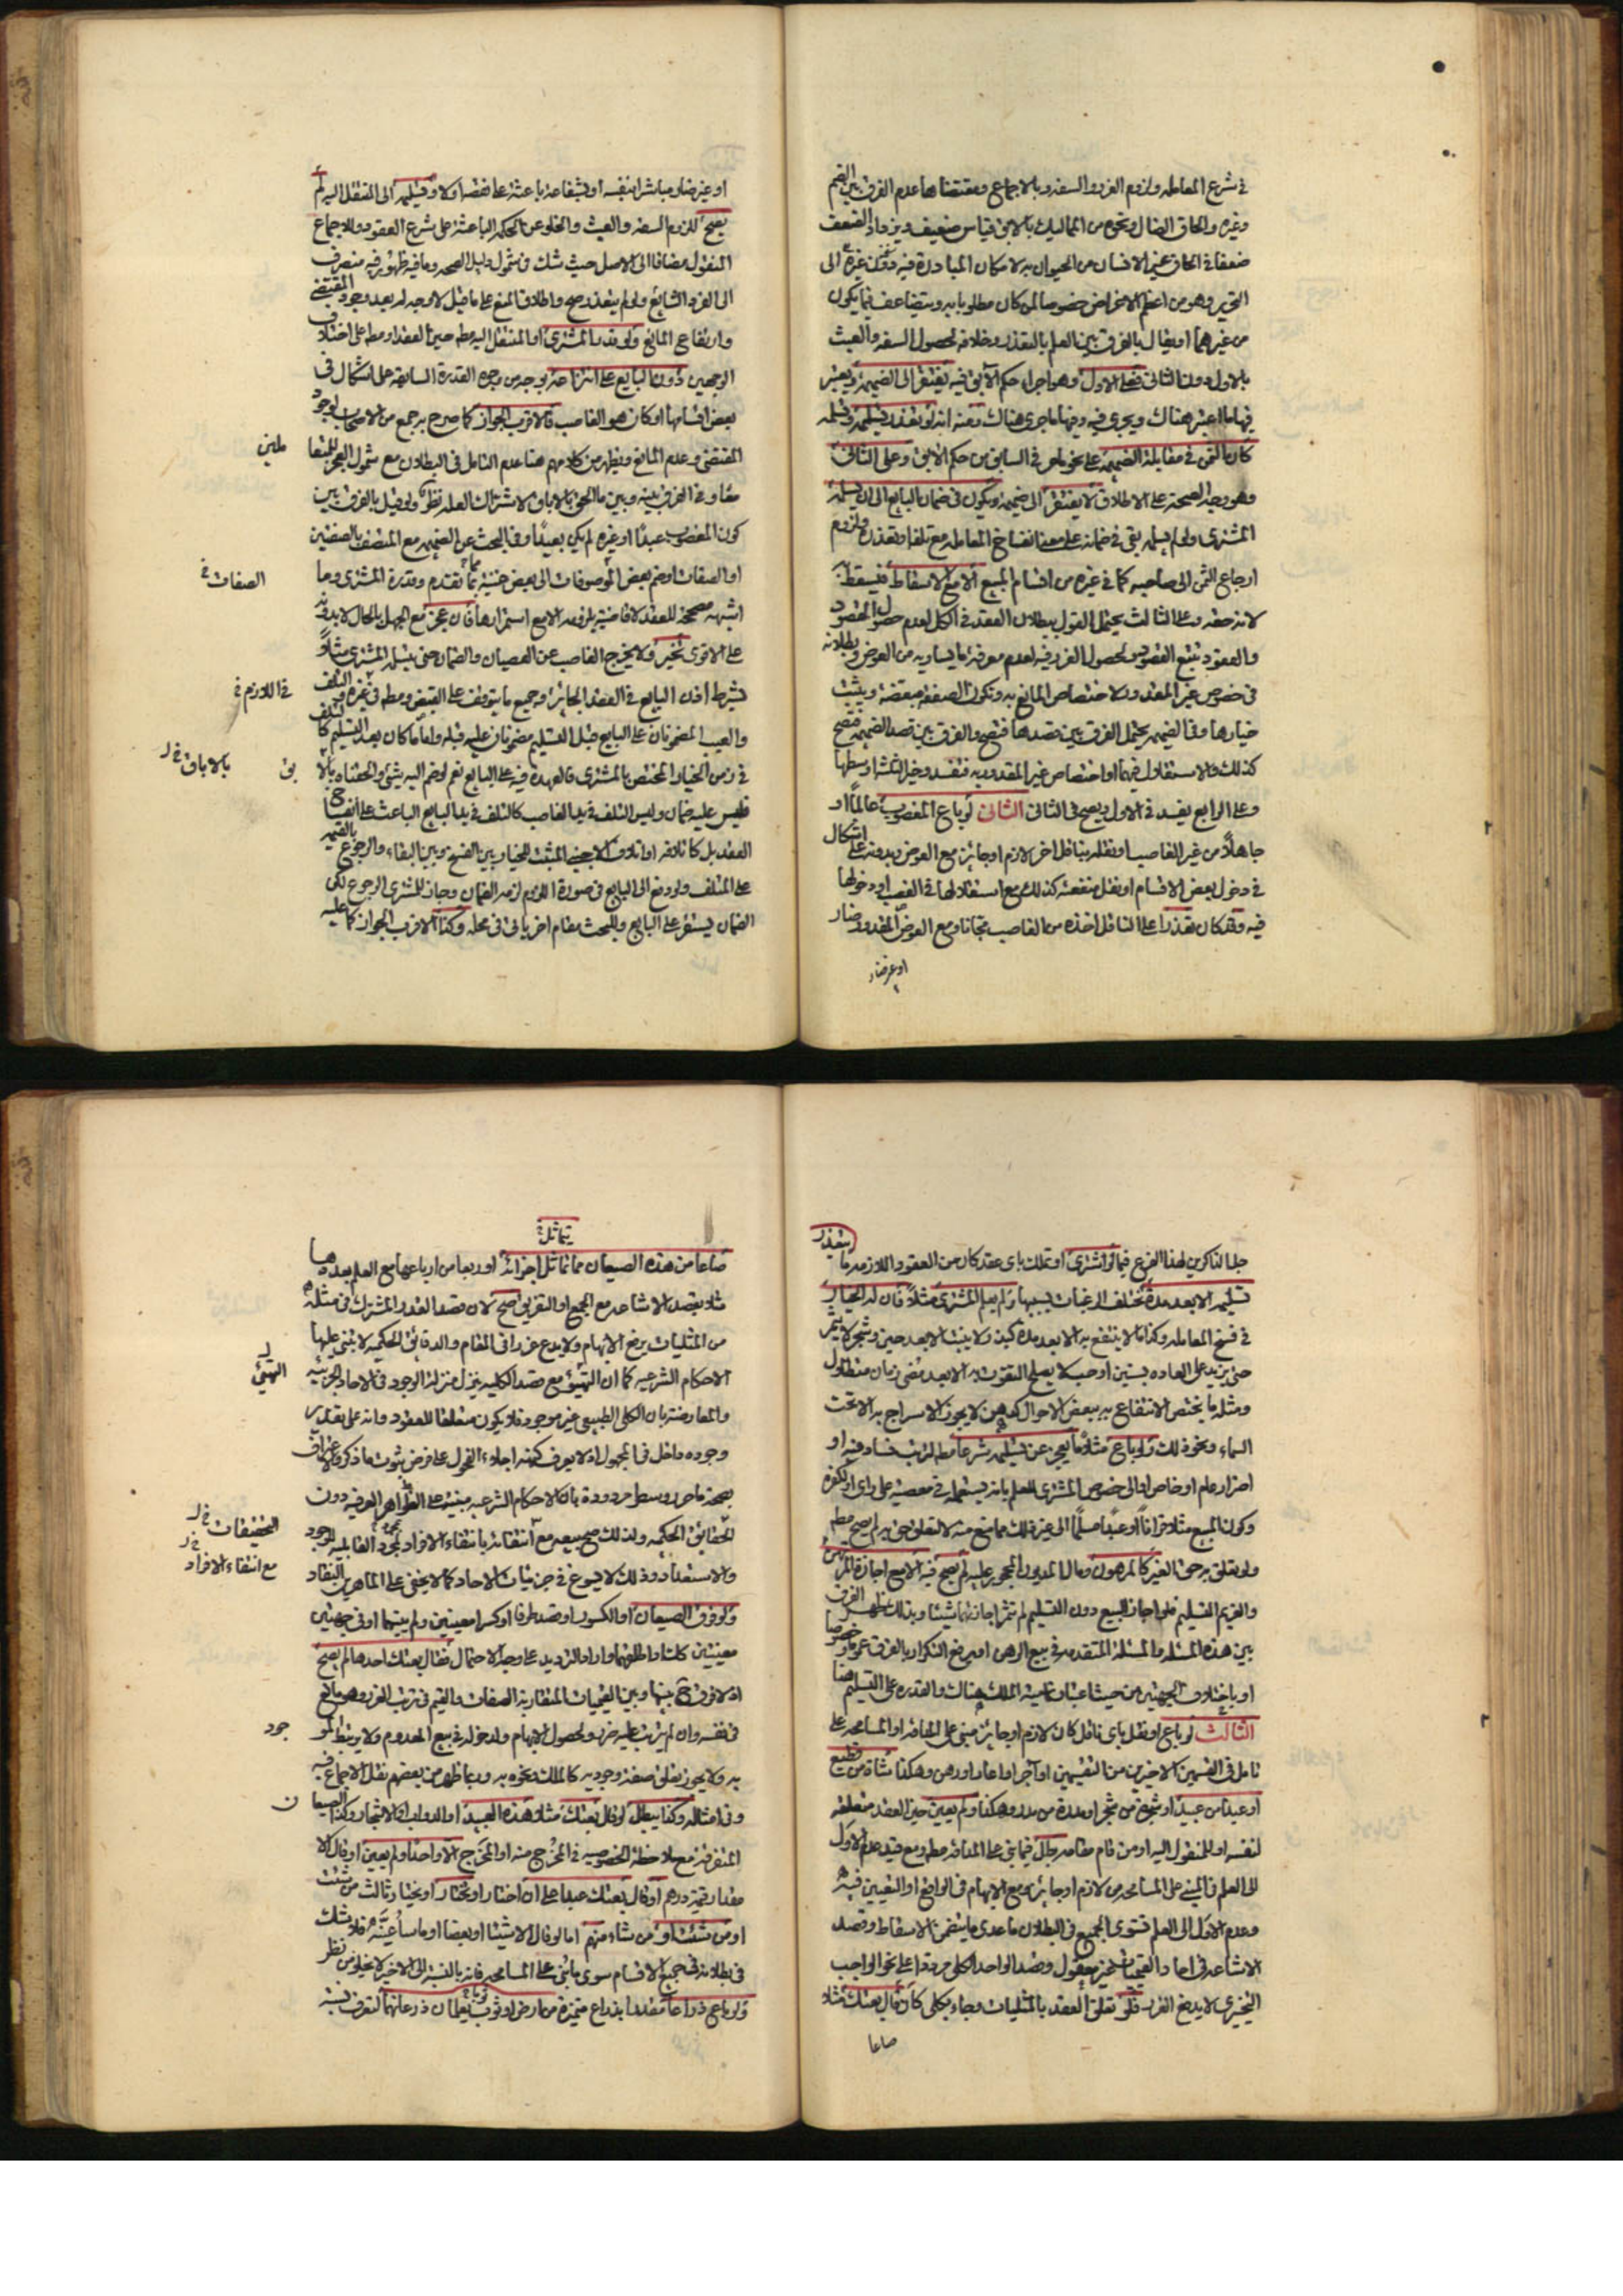 في شرع المعامله ولزوم الغرر والسفه وبالاجماع ومقتضاها عدم الفرق بين القيم
وغيره والحاق الضال ونحوه من المماليك بالابق قياس ضعيف ويزداد الضعف
ضعفا في الحاق غير الانسان من الحيوان به لامكان المبادرة فيه دون غيره الى
التحرير وهو من اعظم الاغراض خصوصا لمن كان مطلوبا به ويتضاعف فيما يكون
من غيرهما او يقال بالفرق بين العلم بالتعذر وخلافه لحصول السفه والعبث
بالاول دون الثاني فعلى الاول وهو اجراء حكم الآبق فيه يفتقر الى الضميمة ويعتبر
فيها ما اعتبر هناك ويجري فيه وفيها ما جرى هناك ومنه انه لو تعذر تسليمه وتسلمه
كان الثمن في مقابلة الضميمه على نحو ما مر في السابق من حكم الآبق وعلى الثاني
وهو وجه الصحة على الاطلاق لا يفتقر الى ضميمه ويكون في ضمان البايع الى ان يتسلمه
المشتري ولو لم يسلمه بقي في ضمانه على معنى انفساخ المعامله مع تلفه او تعذره ولزوم
ارجاع الثمن الى صاحبه كما في غيره من اقسام المبيع الا مع الاسقاط فيسقط
لانه حقه وعلى الثالث يحتمل القول ببطلان العقد في الكل لعدم حصول المقصود
والعقود تتبع القصود لحصول الغرر فيه لعدم معرفة ما يساويه من العوض وبطلانه
في خصوص غير المقدور لاختصاص المانع به وتكون الصفقه مبعضة ويثبت
خيارها وفي الضميمه يحتمل الفرق بين قصدها فتصح والفرق بين قصد الضميمه فتصح
كذلك والاستقلال فيهما او اختصاص غير المقدور به فتفسد وخير الثلثه اوسطها
وعلى الرابع يفسد في الاول ويصح في الثاني الثاني لو باع المغصوب عالماً او
جاهلاً من غير الغاصب او نقله بناقل اخر لازم او جائز مع العوض وبدونه على اشكال
في دخول بعض الاقسام او نقل منفعته كذلك مع استقلالها في الغصب او دخولها
فيه وقد كان تعذر على الناقل اخذه من الغاصب مجانا ومع العوض المقدور ضار
او غير ضار
او غير ضار مباشرا بنفسه او بشفاعة باعثة على نقضه اولا وتسليمه الى المنتقل اليه لم
يصح للزوم السفه والعبث والخلو عن الحكمه الباعثة على شرع العقود وللاجماع
المنقول مضافا الى الاصل حيث شك في شمول دليل الصحه وما فيه ظهور فيه منصرف
الى الفرد الشايع ولو لم يتعذر صح واطلاق المنع على ما قيل لا وجه له بعد وجود المقتضي
وارتفاع المانع ولو قدر المشتري او المنتقل اليه مطه حين العقد او مطه على اختلاف
الوجهين دون البايع على انتزاعه بوجه من وجوه القدرة السابقة على اشكال في
بعض اقسامها او كان هو الغاصب فالاقرب الجواز كما صرح به جمع من الاصحاب لوجود
المقتضي وعدم المانع ويظهر من كلامهم هنا عدم التامل في البطلان مع شمول العجز للمتعا
ملين
معا وفي الفرق بينه وبين ما الحق بالاباق لاشتراك العلة نظر ولو قيل بالفرق بين
كون المغصوب عبداً او غيره لم يكن بعيداً وفي البحث عن الضميمه مع المتصف بالصفتين
او الصفات او ضم بعض الموصوفات الى بعض غنية بما تقدم وقدرة المشتري وما
الصفات في
اشبهه مصححة للعقد لا قاضية بلزومه الا مع استمرارها فان عجز مع الجهل بالحال لا بدونه
على الاقوى تخير ولا يخرج الغاصب عن العصيان والضمان حتى يتسلمه المشتري مثلاً
بشرط اذن البايع في العقد الجائزه وجميع ما يتوقف على القبض ومطه في غيره والتلف
في اللازم في
والعيب المضمونان على البايع قبل التسليم مضمونان عليه قبله واما ما كان بعد التسليم كالتلف
في زمن الخيار المختص بالمشتري فالعهدة فيه على البايع نعم لو ضم اليه شيئ والحقناه بالا
بق بالاباق في ل
فليس عليه ضمان وليس التلف في يد الغاصب كالتلف في يد البايع الباعث على انفساخ
العقد بل كاتلافه او اتلاف الاجنبي المثبت للخيار بين الفسخ وبين البقاء والرجوع بالقيمه
على المتلف ولو دفع الى البايع في صورة اللزوم لزمه الضمان وجاز للمشتري الرجوع لكن
الضمان يستقر على البايع وللبحث مقام اخر ياتي في محله وكذا الاقرب الجواز كما عليه
جل الذاكرين لهذا الفرع فيما لو اشترى او تملك باي عقد كان من العقود اللازمه ما يتعذر
تسليمه الا بعد مدة تختلف الرغبات بسببها ولم يعلم المشتري مثلاً فان له الخيار
في فسخ المعامله وكذا ما لا ينتفع به الا بعد مدة كبذر لا ينبت الا بعد حين وشجر لا يثمر
حتى يزيد على العاده بسنين او حب لا يصلح التقوت به الا بعد مضي زمان متطاول
ومثله ما يختص الانتفاع به ببعض الاحوال كدهن لا يجوز الاسراج به الا تحت
السماء ونحو ذلك ولو باع مثلاً ما يعجز عن تسليمه شرعاً مطه لترتب فساد فيه او
اضرار عام او خاص او الى خصوص المشتري للعلم بانه يستعمله في معصية على راي او لكفره
وكون المبيع مثلا قرآناً او عبداً مسلماً الى غير ذلك مما منع منه لا لتعلق حق به لم يصح مطه
ولو تعلق به حق الغير كالمرهون ومال المديون المحجور عليه لم يصح فيه الا مع اجازة المرتهن
والغريم التسليم فلو اجاز البيع دون التسليم لم تثمر اجازتهما شيئا وبذلك يظهر الفرق
بين هذه المسئله والمسئلة المتقدمه في بيع الرهن او يرفع التكرار بالفرق عموما وخصوصا
او باختلاف الجهتين من حيث اعتبار تماميه الملك هناك والقدرة على التسليم هنا
الثالث لو باع او نقل باي ناقل كان لازم او جائز مبني على المداقه او المسامحه على
تامل في القسمين الاخيرين من التقسيمين او آجر او اعار او رهن وهكذا شاة من قطيع
او عبدا من عبيد او شجرة من شجر او مدرة من مدر وهكذا ولم يعين حين العقد متعلقه
لنفسه او للمنقول اليه او من قام مقامه بطل فيما بني على المداقه مطه ومع قيد عدم الاول
الى العلم في المبني على المسامحه من لازم او جائز مع الابهام في الواقع او التعيين فيه
وعدم الاول الى العلم فتسوى الجميع في البطلان ما عدى ما يتضمن الاسقاط وقصد
الاشاعه في احاد القيميات غير معقول وقصد الواحد الكلي مردودا على نحو الواجب
التخييري لا يدفع الغرر فلو تعلق العقد بالمثليات وجاء بكلي كان قال بعتك مثلا
صاعا
يتماثل في
صاعا من هذه الصيعان مما تماثل اجزائه او ربعا من ارباعها مع العلم بعددها
مثلا بقصد الاشاعه مع الجمع او التفريق اصح لان قصد القدر المشترك في مثله
من المثليات يرفع الابهام ولا يدع غررا في المقام والدقايق الحكميه لا تبني عليها
الاحكام الشرعيه كما ان التهيؤ مع قصد الكليه ينزل منزلة الوجود في الاحاد الجزئيه
التهيئ
والمعارضة بان الكلي الطبيعي غير موجود فلا يكون متعلقا للعقود وانه على تقدير
وجوده داخل في المجهول اذ لا يعرف كنهه اجلاء العقول على فرض ثبوت ما ذكروه
صحة ما حرروه مردودة بان الاحكام الشرعيه مبنية على الظواهر العرفيه دون
الحقايق الحكميه ولذلك صح بيعه مع انتفائه بانتفاء الافراد لمجرد القابلية للوجود
التحقيقات في ل
مع انتفاء الافراد
والاستعداد وذلك لا يسوغ في جزئيات الاحاد كما لا يخفى على الماهرين النقاد
ولو فرق الصيعان او الكسور او قصد طرفا او كسرا معينين ولم يبينها او في جهتين
معينتين كلت او اطلقهما واراد الترديد على وجه الاحتمال فقال بعتك احدها لم يصح
اذ لا فرق ح بينها وبين القيميات المتقاربة الصفات والقيم في ترتب الغرر وهو مانع
في نفسه وان لم يترتب عليه ضرر ولحصول الابهام ولدخوله في بيع المعدوم ولا يرتبط المو
جود
به ولا يجوز تعلق صفة وجوديه كالملك ونحوه به وربما ظهر من بعضهم نقل الاجماع فيه
وفي امثاله وكذا يبطل لو قال بعتك مثلا هذه العبيد او الدواب او الاشجار وكذا الصيعا
ن
المتفرقة مع ملاحظة الخصوصيه في المخرج منه او المخرج الا واحدا ولم يعين او قال الا
مقدار قيمة درهم او قال بعتك عبدا على ان اختار او تختار او يختار ثالث من شئت
او من شئت او من شاء منهم اما لو قال الا شيئا او بعضا او ما ساعينه فلا شك
في بطلانه في جميع الاقسام سوى ما بني على المسامحه فانه بالنسبة الى الاخير لا يخلو من نظر
ولو باع ذراعا مقدرا بذراع متميزة من ارض او ثوب يعلمان ذرعانهما لتعرف نسبة